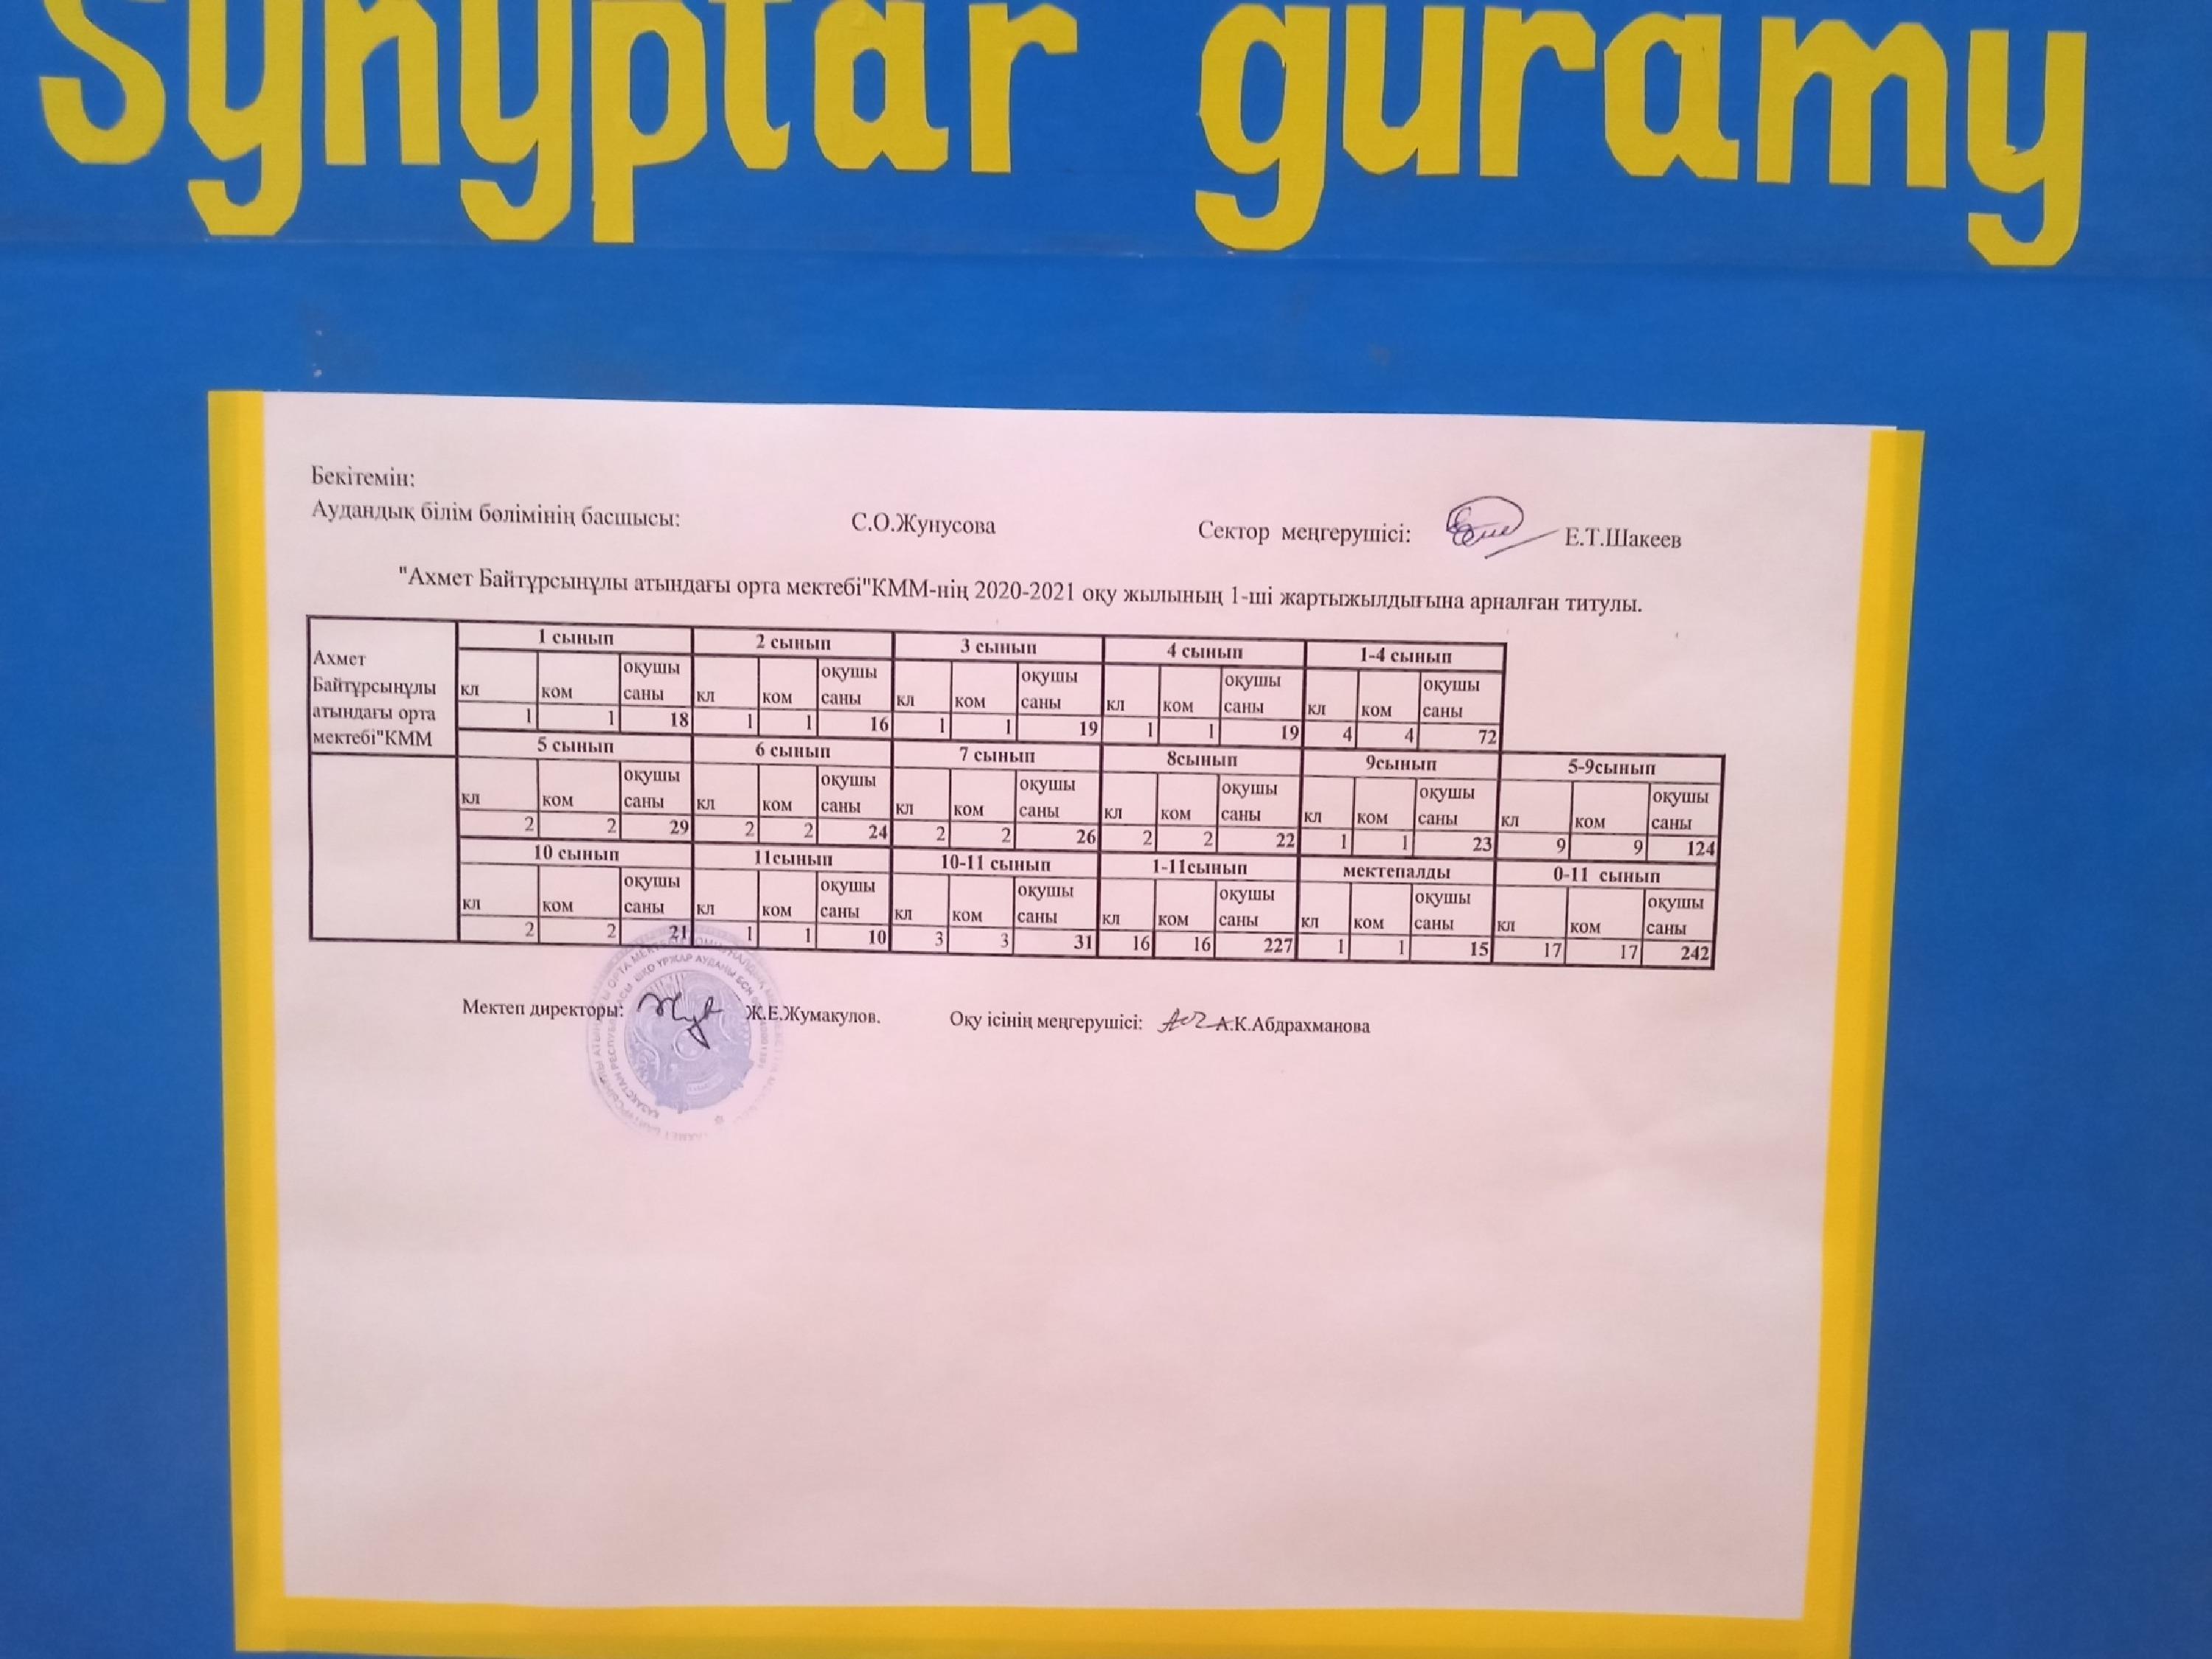 Synyptar guramy
Бекітемін:
Аудандық білім бөлімінің басшысы: С.О.Жунусова Сектор меңгерушісі: Е.Т.Шакеев
"Ахмет Байтұрсынұлы атындағы орта мектебі"КММ-нің 2020-2021 оқу жылының 1-ші жартыжылдығына арналған титулы.
Ахмет Байтұрсынұлы атындағы орта мектебі"КММ
1 сынып 2 сынып 3 сынып 4 сынып 1-4 сынып
кл ком оқушы саны кл ком оқушы саны кл ком оқушы саны кл ком оқушы саны кл ком оқушы саны
1 1 18 1 1 16 1 1 19 1 1 19 4 4 72
5 сынып 6 сынып 7 сынып 8сынып 9сынып 5-9сынып
кл ком оқушы саны кл ком оқушы саны кл ком оқушы саны кл ком оқушы саны кл ком оқушы саны кл ком оқушы саны
2 2 29 2 2 24 2 2 26 2 2 22 1 1 23 9 9 124
10 сынып 11сынып 10-11 сынып 1-11сынып мектепалды 0-11 сынып
кл ком оқушы саны кл ком оқушы саны кл ком оқушы саны кл ком оқушы саны кл ком оқушы саны кл ком оқушы саны
2 2 21 1 1 10 3 3 31 16 16 227 1 1 15 17 17 242
Мектеп директоры: Ж.Е.Жумакулов. Оқу ісінің меңгерушісі: А.К.Абдрахманова